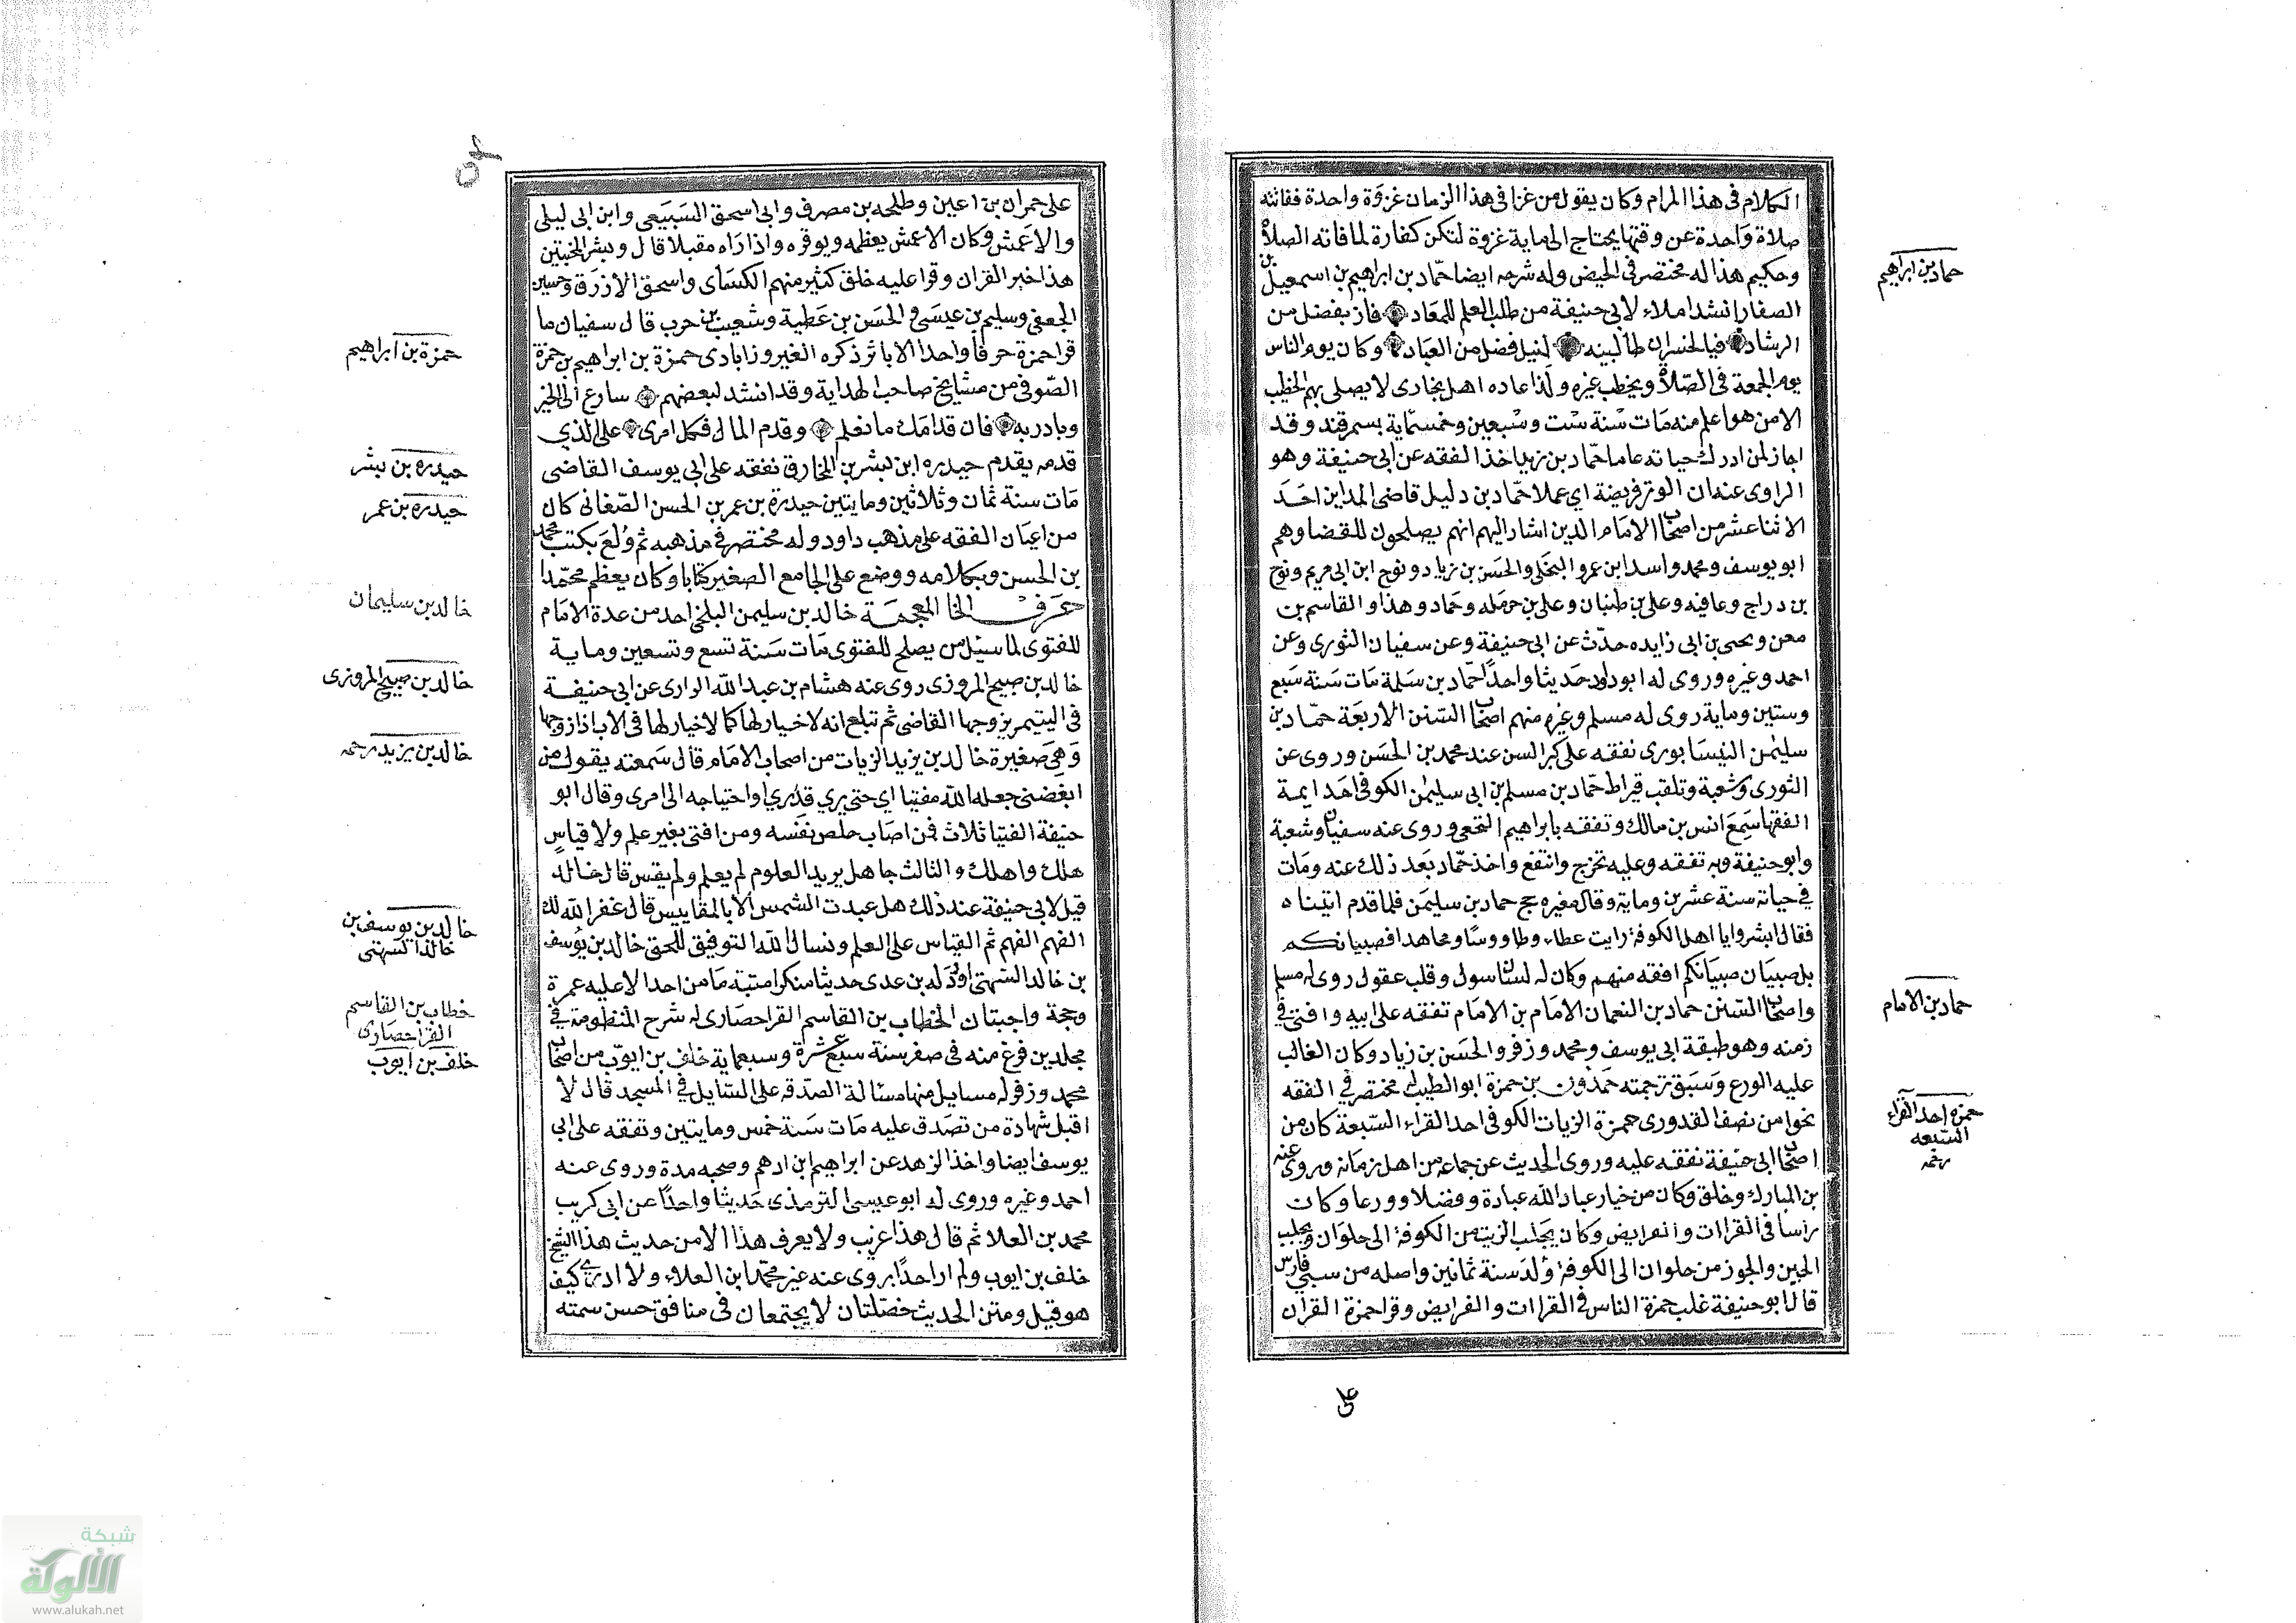 الكلام فى هذا المرام وكان يقول من غزا فى هذا الزمان غزوة واحدة ففاتته
صلاة واحدة عن وقتها يحتاج الى ماية غزوة لتكن كفارة لما فاته الصلاة
وحكيم هذا له مختصر فى الحيض وله شرحه ايضا حماد بن ابراهيم بن اسمعيل بن
الصفار انشد املاء لابى حنيفة من طلب العلم للمعاد فاز بفضل من
الرشاد فيا لخسران طالبيه لنيل فضل من العباد وكان يوم الناس
يوم الجمعة فى الصلاة ويخطب غيره ولذا عاده اهل بخارى لا يصلى بهم الخطيب
الا من هو اعلم منه مات سنة ست وسبعين وخمسماية بسمرقند وقد
اجاز لمن ادرك حياته عاما حماد بن زيد اخذ الفقه عن ابى حنيفة وهو
الراوى عنه ان الوتر فريضة اي عملا حماد بن دليل قاضى المداين احد
الاثنا عشر من اصحاب الامام الذين اشار اليهم انهم يصلحون للقضا وهم
ابو يوسف ومحمد واسد ابن عمرو البجلى والحسن بن زياد ونوح ابن ابى مريم ونوح
بن دراج وعافيه وعلى بن طبيان وعلى بن حرمله وحماد وهذا والقاسم بن
معن ويحيى بن ابى زايده حدث عن ابى حنيفة وعن سفيان الثورى وعن
احمد وغيره وروى له ابو داود حديثا واحدا حماد بن سلمة مات سنة سبع
وستين وماية روى له مسلم وغيره منهم اصحاب السنن الاربعة حماد بن
سليمن النيسابورى تفقه على كبر السن عند محمد بن الحسن وروى عن
الثورى وشعبة وتلقب قيراط حماد بن مسلم بن ابى سليمن الكوفى احد ايمة
الفقها سمع انس بن مالك وتفقه بابراهيم النخعى وروى عنه سفيان وشعبة
وابو حنيفة وبه تفقه وعليه تخرج وانتفع واخذ حماد بعد ذلك عنه ومات
في حياته سنة عشرين وماية وقال مغيره حج حماد بن سليمن فلما قدم اتيناه
فقال ابشروا يا اهل الكوفة رايت عطاء وطاووسا ومجاهدا فصبيانكم
بل صبيان صبيانكم افقه منهم وكان له لسان سول وقلب عقول روى له مسلم
واصحاب السنن حماد بن النعمان الامام بن الامام تفقه على ابيه وافتى في
زمنه وهو طبقة ابى يوسف ومحمد وزفر والحسن بن زياد وكان الغالب
عليه الورع وسبق ترجمته حمدون بن حمزة ابو الطيب له مختصر في الفقه
نحوا من نصف القدورى حمزة الزيات الكوفى احد القراء السبعة كان من
اصحاب ابى حنيفة تفقه عليه وروى الحديث عن جماعه من اهل زمانه وروى عنه
بن المبارك وخلق وكان من خيار عباد الله عبادة وفضلا وورعا وكان
راسا فى القراات والفرايض وكان يجلب الزيت من الكوفة الى حلوان ويجلب
الجبن والجوز من حلوان الى الكوفة ولد سنة ثمانين واصله من سبي فارس
قال ابو حنيفة غلب حمزة الناس فى القراات والفرايض وقرا حمزة القران
على
حماد بن ابراهيم
حماد بن الامام
حمزه احد القراء
السبعه
رحمه
٥٢
على حمران بن اعين وطلحه بن مصرف وابى اسحق السبيعى وابن ابى ليلى
والاعمش وكان الاعمش يعظمه ويوقره واذا راه مقبلا قال وبشر المخبتين
هذا خبر القران وقرا عليه خلق كثير منهم الكساى واسحق الازرق وحسين
الجعفى وسليم بن عيسى والحسن بن عطية وشعيب بن حرب قال سفيان ما
قرا حمزة حرفا واحدا الا باثر ذكره الفيروزابادى حمزة بن ابراهيم بن حمزة
الصوفى من مشايخ صاحب الهداية وقد انشد لبعضهم سارع الى الخير
وبادر به فان قدامك ما تعلم وقدم المال فكل امرى على الذي
قدمه يقدم حيدره ابن بشر بن المخارق تفقه على ابى يوسف القاضى
مات سنة ثمان وثلاثين ومايتين حيدرة بن عمر بن الحسن الصغانى كان
من اعيان الفقه على مذهب داود وله مختصر فى مذهبه ثم ولع بكتب محمد
بن الحسن وبكلامه ووضع على الجامع الصغير كتابا وكان يعظم محمدا
حرف الخا المعجمة خالد بن سليمن البلخى احد من عدة الامام
للفتوى لما سيل من يصلح للفتوى مات سنة تسع وتسعين وماية
خالد بن صبيح المروزى روى عنه هشام بن عبد الله الرازى عن ابى حنيفة
فى اليتيم يزوجها القاضى ثم تبلغ انه لا خيار لها كما لا خيار لها فى الاب اذا زوجها
وهى صغيرة خالد بن يزيد الزيات من اصحاب الامام قال سمعته يقول من
ابغضنى جعله الله مفتيا اي حتى يري قدري واحتياجه الى امرى وقال ابو
حنيفة الفتيا ثلاث فمن اصاب خلص نفسه ومن افتى بغير علم ولا قياس
هلك واهلك والثالث جاهل يريد العلوم لم يعلم ولم يقس قال خالد
قيل لابى حنيفة عند ذلك هل عبدت الشمس الا بالمقاييس قال غفر الله لك
الفهم الفهم ثم القياس على العلم ونسال الله التوفيق للحق خالد بن يوسف
بن خالد السهتى اورد له بن عدى حديثا منكرا متنه ما من احد الا عليه عمرة
وحجة واجبتان الخطاب بن القاسم القراحصارى له شرح المنظومة في
مجلدين فرغ منه فى صفر سنة سبع عشرة وسبعماية خلف بن ايوب من اصحاب
محمد وزفر له مسايل منها مسالة الصدقه على السايل في المسجد قال لا
اقبل شهادة من تصدق عليه مات سنة خمس ومايتين وتفقه على ابى
يوسف ايضا واخذ الزهد عن ابراهيم ابن ادهم وصحبه مدة وروى عنه
احمد وغيره وروى له ابو عيسى الترمذى حديثا واحدا عن ابى كريب
محمد بن العلا ثم قال هذا غريب ولا يعرف هذا الا من حديث هذا الشيخ
خلف بن ايوب ولم ار احدا يروى عنه غير محمد ابن العلاء ولا ادري كيف
هو قيل ومتن الحديث خصلتان لا يجتمعان فى منافق حسن سمته
حمزة بن ابراهيم
حيدره بن بشر
حيدره بن عمر
خالد بن سليمان
خالد بن صبيح المروزى
خالد بن يزيد رحمه
خالد بن يوسف بن
خالد السهتى
خطاب بن القاسم
القراحصارى
خلف بن ايوب
شبكة
الألوكة
www.alukah.net